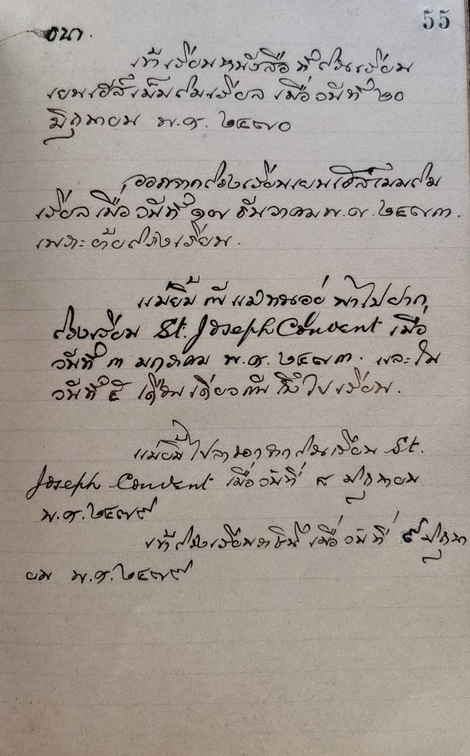 55
ธนา.
เข้าเรียนหนังสือที่โรงเรียน
เยนเฮส์เม็มโมเรียล เมื่อวันที่ ๒๐
มิถุนายน พ.ศ. ๒๔๗๐
ออกจากโรงเรียนเยนเฮส์เมมโม
เรียลเมื่อวันที่ ๑๗ ธันวาคม พ.ศ. ๒๔๗๓.
เพราะย้ายโรงเรียน.
แม่ยี่ พาไปฝาก
โรงเรียน St. Joseph Convent เมื่อ
วันที่ ๓ มกราคม พ.ศ. ๒๔๗๓. และใน
วันที่ ๕ เดือนเดียวกันไปเรียน.
แม่ยี่ไปลาออกจากโรงเรียน St.
Joseph Convent เมื่อวันที่ ๘ มิถุนายน
พ.ศ. ๒๔๗๙
เข้าโรงเรียนราชินี เมื่อวันที่ ๙ มิถุนา
ยน พ.ศ. ๒๔๗๙